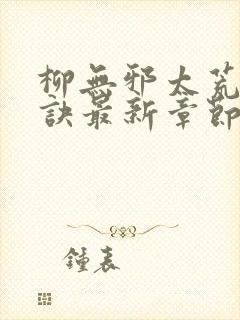 柳無邪太荒
訣最新章節
鍾表